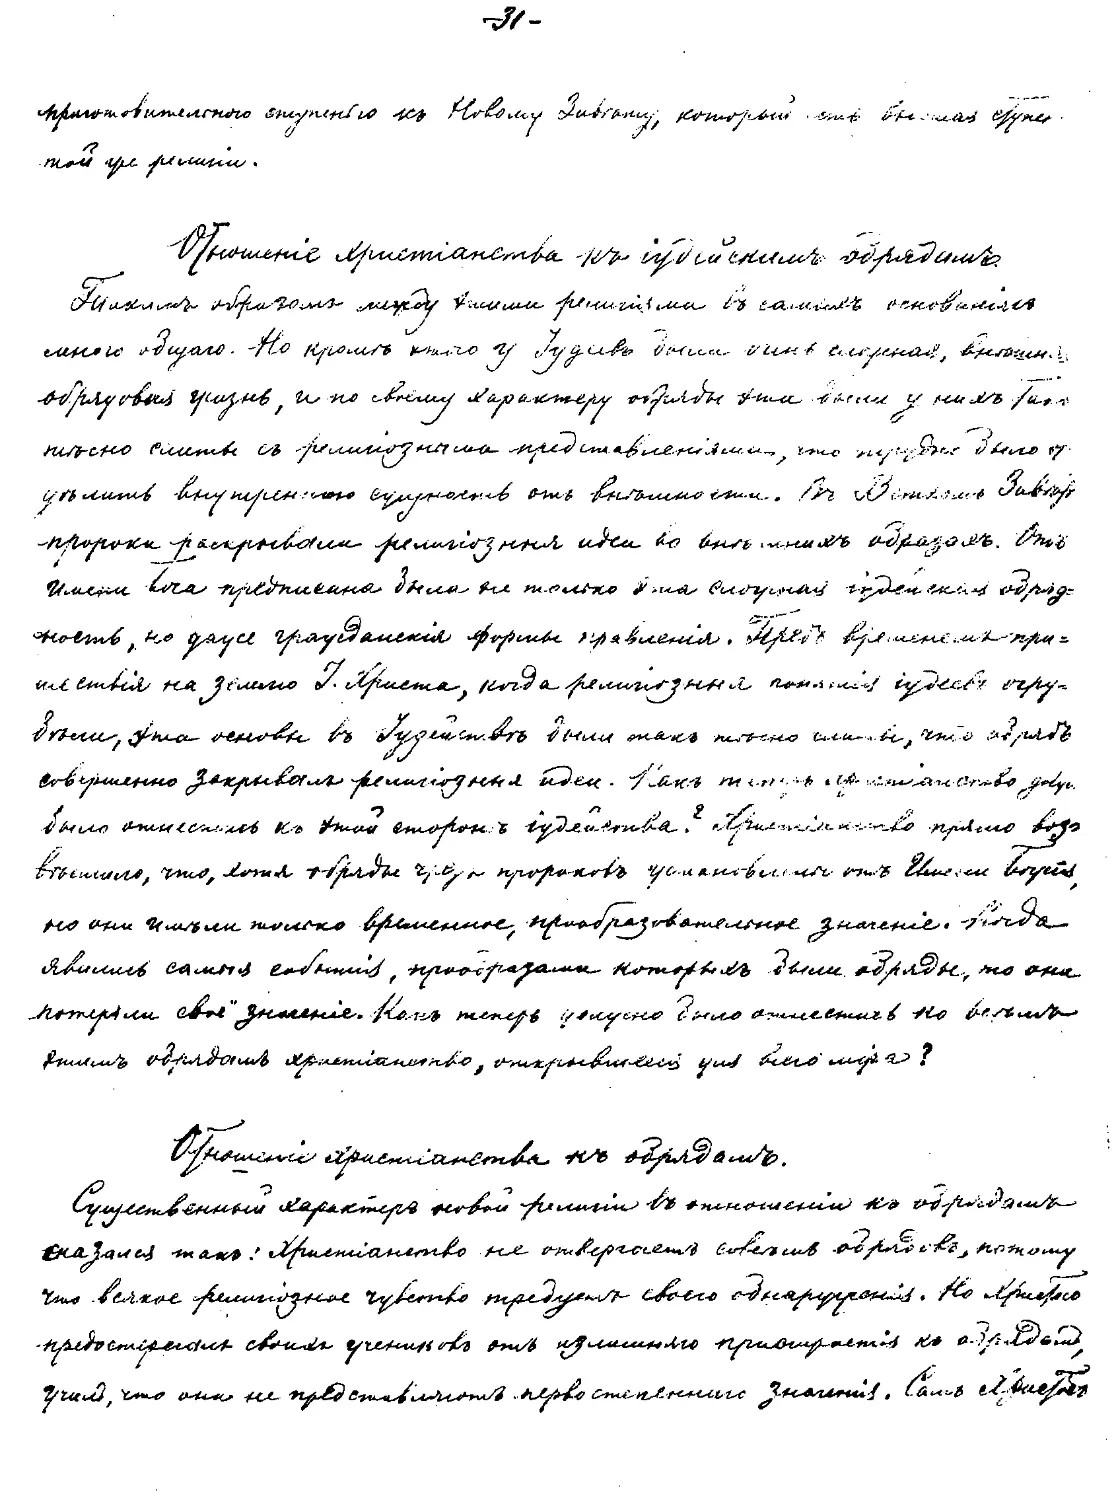 -31-
приготовительною ступенью къ Новому Завѣту, который есть высшая ступень
той же религіи.
Отношеніе христіанства къ іудейскимъ обрядамъ.
Такимъ образомъ между этими религіями въ самыхъ основаніяхъ
много общаго. Но кромѣ этого у Іудеевъ была очень сложная, внѣшняя
обрядовая жизнь, и по своему характеру обряды эти были у нихъ такъ
тѣсно слиты съ религіозными представленіями, что трудно было от-
дѣлить внутреннюю сущность отъ внѣшности. Въ Ветхомъ Завѣтѣ
пророки раскрывали религіозныя идеи во внѣшнихъ образахъ. Отъ
имени Бога предписана была не только эта сложная іудейская обряд=
ность, но даже гражданскія формы правленія. Предъ временемъ при=
шествія на землю І. Христа, когда религіозныя понятія іудеевъ огру=
бѣли, эта основы въ Іудействѣ были такъ тѣсно слиты, что обрядъ
совершенно закрывалъ религіозныя идеи. Какъ теперь христіанство должно
было отнестись къ этой сторонѣ іудейства? Христіанство прямо воз=
вѣстило, что, хотя обряды чрезъ пророковъ установлены отъ Имени Божія,
но они имѣли только временное, прообразовательное значеніе. Когда
явились самыя событія, прообразами которыхъ были обряды, то они
потеряли своё значеніе. Какъ теперь должно было отнестись ко всѣмъ
этимъ обрядамъ христіанство, открывшееся для всего міра?
Отношеніе христіанства къ обрядамъ.
Существенный характеръ новой религіи въ отношеніи къ обрядамъ
сказался такъ: Христіанство не отвергаетъ совсѣмъ обрядовъ, потому
что всякое религіозное чувство требуетъ своего обнаруженія. Но Христосъ
предостерегалъ своихъ учениковъ отъ излишняго пристрастія къ обрядамъ,
училъ, что они не представляютъ первостепеннаго значенія. Самъ Христосъ